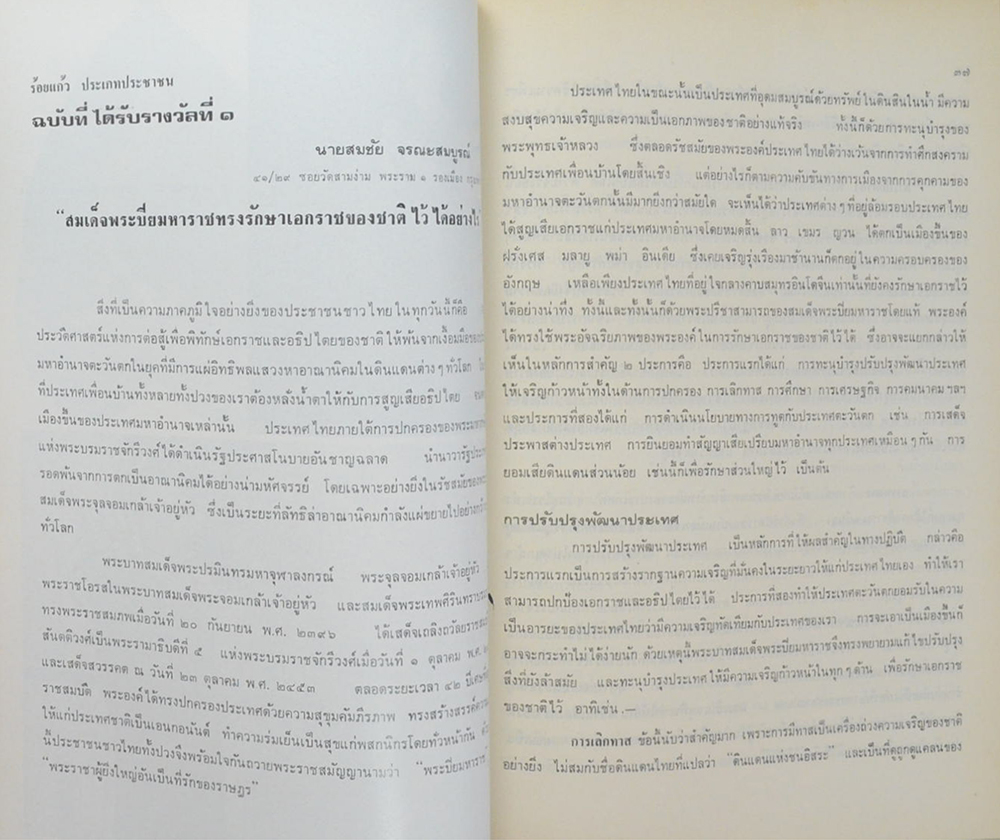 ร้อยแก้ว ประเภทประชาชน
ฉบับที่ได้รับรางวัลที่ ๑
นายสมชัย จรณะสมบูรณ์
๔๑/๒๙ ซอยวัดสามง่าม พระราม ๑ รองเมือง
“สมเด็จพระปิยมหาราชทรงรักษาเอกราชของชาติไว้ได้อย่างไร
สิ่งที่เป็นความภาคภูมิใจอย่างยิ่งของประชาชนชาวไทยในทุกวันนี้ก็คือ
ประวัติศาสตร์แห่งการต่อสู้เพื่อพิทักษ์เอกราชและอธิปไตยของชาติ ให้พ้นจากเงื้อมมือของ
มหาอำนาจตะวันตกในยุคที่มีการแผ่อิทธิพลแสวงหาอาณานิคมในดินแดนต่างๆ ทั่วโลก
ที่ประเทศเพื่อนบ้านทั้งหลายทั้งปวงของเราต้องหลั่งน้ำตาให้กับการสูญเสียอธิปไตย
เมืองขึ้นของประเทศมหาอำนาจเหล่านั้น ประเทศไทยภายใต้การปกครองของพระมหา
แห่งพระบรมราชจักรีวงศ์ได้ดำเนินรัฐประศาสโนบายอันชาญฉลาด นำนาวารัฐ
รอดพ้นจากการตกเป็นอาณานิคมได้อย่างน่ามหัศจรรย์ โดยเฉพาะอย่างยิ่งในรัชสมัยของ
สมเด็จพระจุลจอมเกล้าเจ้าอยู่หัว ซึ่งเป็นระยะที่ลัทธิล่าอาณานิคมกำลังแผ่ขยายไปอย่าง
ทั่วโลก
พระบาทสมเด็จพระปรมินทรมหาจุฬาลงกรณ์ พระจุลจอมเกล้าเจ้าอยู่หัว
พระราชโอรสในพระบาทสมเด็จพระจอมเกล้าเจ้าอยู่หัว และสมเด็จพระเทพศิรินทรา
ทรงพระราชสมภพเมื่อวันที่ ๒๐ กันยายน พ.ศ. ๒๓๙๖ ได้เสด็จเถลิงถวัลยราช
สันตติวงศ์เป็นพระรามาธิบดีที่ ๕ แห่งพระบรมราชจักรีวงศ์เมื่อวันที่ ๑ ตุลาคม พ.ศ.
และเสด็จสวรรคต ณ วันที่ ๒๓ ตุลาคม พ.ศ. ๒๔๕๓ ตลอดระยะเวลา ๔๒ ปีเศษ
ราชสมบัติ พระองค์ได้ทรงปกครองประเทศด้วยความสุขุมคัมภีรภาพ ทรงสร้างสรรค์
ให้แก่ประเทศชาติเป็นเอนกอนันต์ ทำความร่มเย็นเป็นสุขแก่พสกนิกรโดยทั่วหน้ากัน
นี้ประชาชนชาวไทยทั้งปวงจึงพร้อมใจกันถวายพระราชสมัญญานามว่า “พระปิยมหาราช
“พระราชาผู้ยิ่งใหญ่อันเป็นที่รักของราษฎร”
๓๗
ประเทศไทยในขณะนั้นเป็นประเทศที่อุดมสมบูรณ์ด้วยทรัพย์ในดินสินในน้ำ มีความ
สงบสุขความเจริญและความเป็นเอกภาพของชาติอย่างแท้จริง ทั้งนี้ก็ด้วยการทะนุบำรุงของ
พระพุทธเจ้าหลวง ซึ่งตลอดรัชสมัยของพระองค์ประเทศไทยได้ว่างเว้นจากการทำศึกสงคราม
กับประเทศเพื่อนบ้านโดยสิ้นเชิง แต่อย่างไรก็ตามความคับขันทางการเมืองจากการคุกคามของ
มหาอำนาจตะวันตกนั้นมีมากยิ่งกว่าสมัยใด จะเห็นได้ว่าประเทศต่างๆ ที่อยู่ล้อมรอบประเทศไทย
ได้สูญเสียเอกราชแก่ประเทศมหาอำนาจโดยหมดสิ้น ลาว เขมร ญวน ได้ตกเป็นเมืองขึ้นของ
ฝรั่งเศส มลายู พม่า อินเดีย ซึ่งเคยเจริญรุ่งเรืองมาช้านานก็ตกอยู่ในความครอบครองของ
อังกฤษ เหลือเพียงประเทศไทยที่อยู่ใจกลางคาบสมุทรอินโดจีนเท่านั้นที่ยังคงรักษาเอกราชไว้
ได้อย่างน่าทึ่ง ทั้งนี้และทั้งนั้นก็ด้วยพระปรีชาสามารถของสมเด็จพระปิยมหาราชโดยแท้ พระองค์
ได้ทรงใช้พระอัจฉริยภาพของพระองค์ในการรักษาเอกราชของชาติไว้ได้ ซึ่งอาจจะแยกกล่าวให้
เห็นในหลักการสำคัญ ๒ ประการคือ ประการแรกได้แก่ การทะนุบำรุงปรับปรุงพัฒนาประเทศ
ให้เจริญก้าวหน้าทั้งในด้านการปกครอง การเลิกทาส การศึกษา การเศรษฐกิจ การคมนาคม ฯลฯ
และประการที่สองได้แก่ การดำเนินนโยบายทางการทูตกับประเทศตะวันตก เช่น การเสด็จ
ประพาสต่างประเทศ การยินยอมทำสัญญาเสียเปรียบมหาอำนาจทุกประเทศเหมือนๆ กัน การ
ยอมเสียดินแดนส่วนน้อย เช่นนี้ก็เพื่อรักษาส่วนใหญ่ไว้ เป็นต้น
การปรับปรุงพัฒนาประเทศ
การปรับปรุงพัฒนาประเทศ เป็นหลักการที่ให้ผลสำคัญในทางปฏิบัติ กล่าวคือ
ประการแรกเป็นการสร้างรากฐานความเจริญที่มั่นคงในระยะยาวให้แก่ประเทศไทยเอง ทำให้เรา
สามารถปกป้องเอกราชและอธิปไตยไว้ได้ ประการที่สองทำให้ประเทศตะวันตกยอมรับในความ
เป็นอารยะของประเทศไทยว่ามีความเจริญทัดเทียมกับประเทศของเรา การจะเอาเป็นเมืองขึ้นก็
อาจจะกระทำไม่ได้ง่ายนัก ด้วยเหตุนี้พระบาทสมเด็จพระปิยมหาราชจึงทรงพยายามแก้ไขปรับปรุง
สิ่งที่ยังล้าสมัย และทะนุบำรุงประเทศให้มีความเจริญก้าวหน้าในทุกๆ ด้าน เพื่อรักษาเอกราช
ของชาติไว้ อาทิเช่น.—
การเลิกทาส ข้อนี้นับว่าสำคัญมาก เพราะการมีทาสเป็นเครื่องถ่วงความเจริญของชาติ
อย่างยิ่ง ไม่สมกับชื่อดินแดนไทยที่แปลว่า “ดินแดนแห่งชนอิสระ” และเป็นที่ดูถูกดูแคลนของ